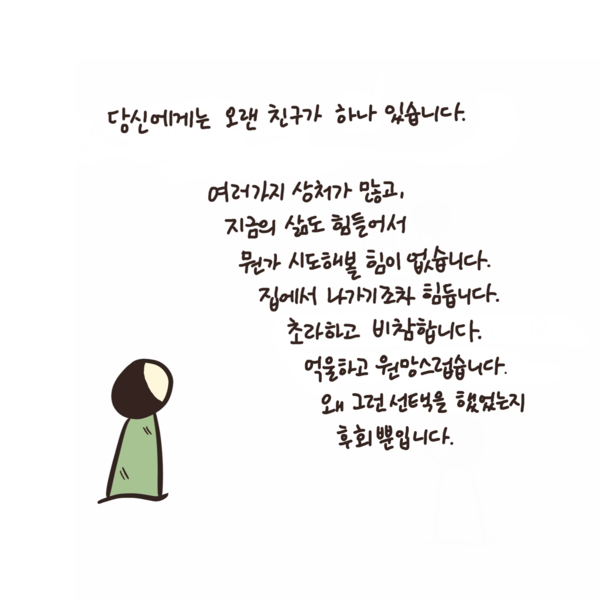 당신에게는 오랜 친구가 하나 있습니다.
여러가지 상처가 많고,
지금의 삶도 힘들어서
뭔가 시도해볼 힘이 없습니다.
집에서 나가기조차 힘듭니다.
초라하고 비참합니다.
억울하고 원망스럽습니다.
왜 그런 선택을 했었는지
후회뿐입니다.